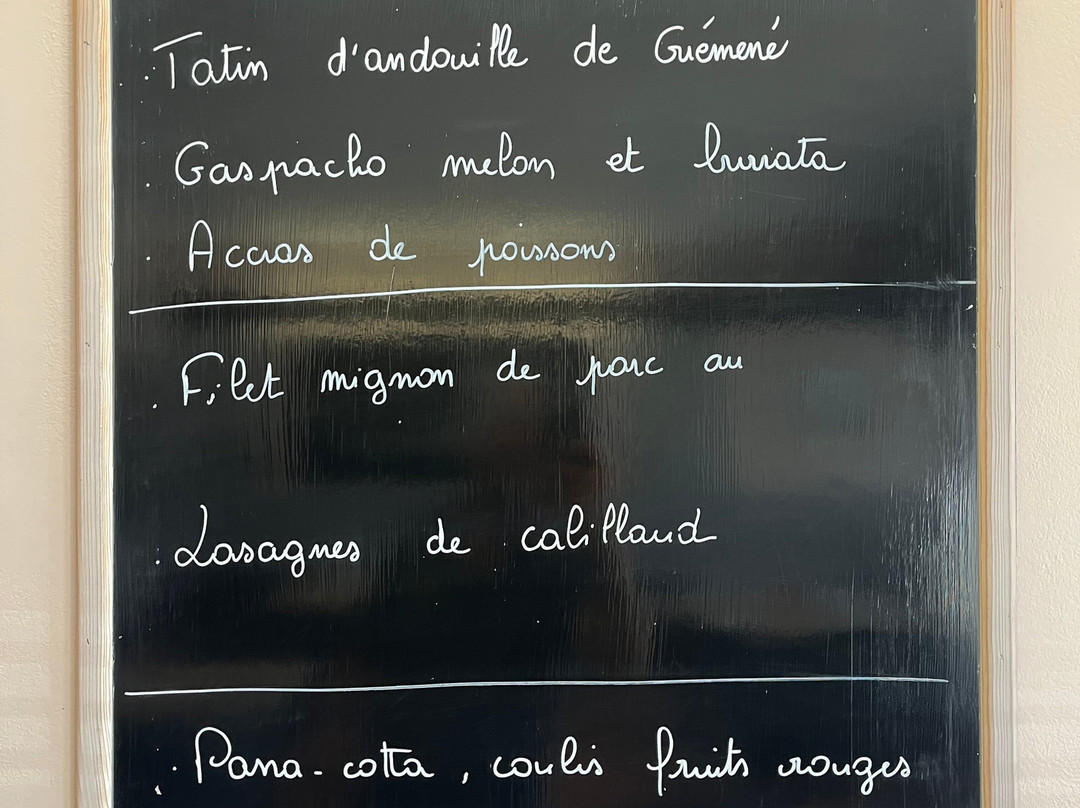 . Tatin d'andouille de Guémené
. Gaspacho melon et burrata
. Accras de poissons
. Filet mignon de porc au
. Lasagnes de cabillaud
. Pana-cotta, coulis fruits rouges